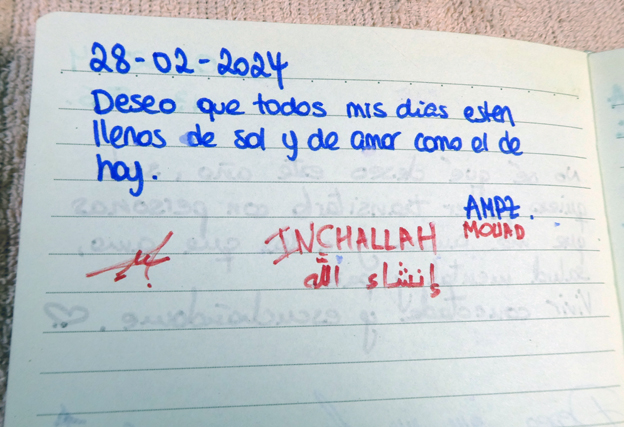 28-02-2024
Deseo que todos mis dias esten
llenos de sol y de amor como el de
hoy.
AMPZ.
INCHALLAH MOUAD
إنشاء الله